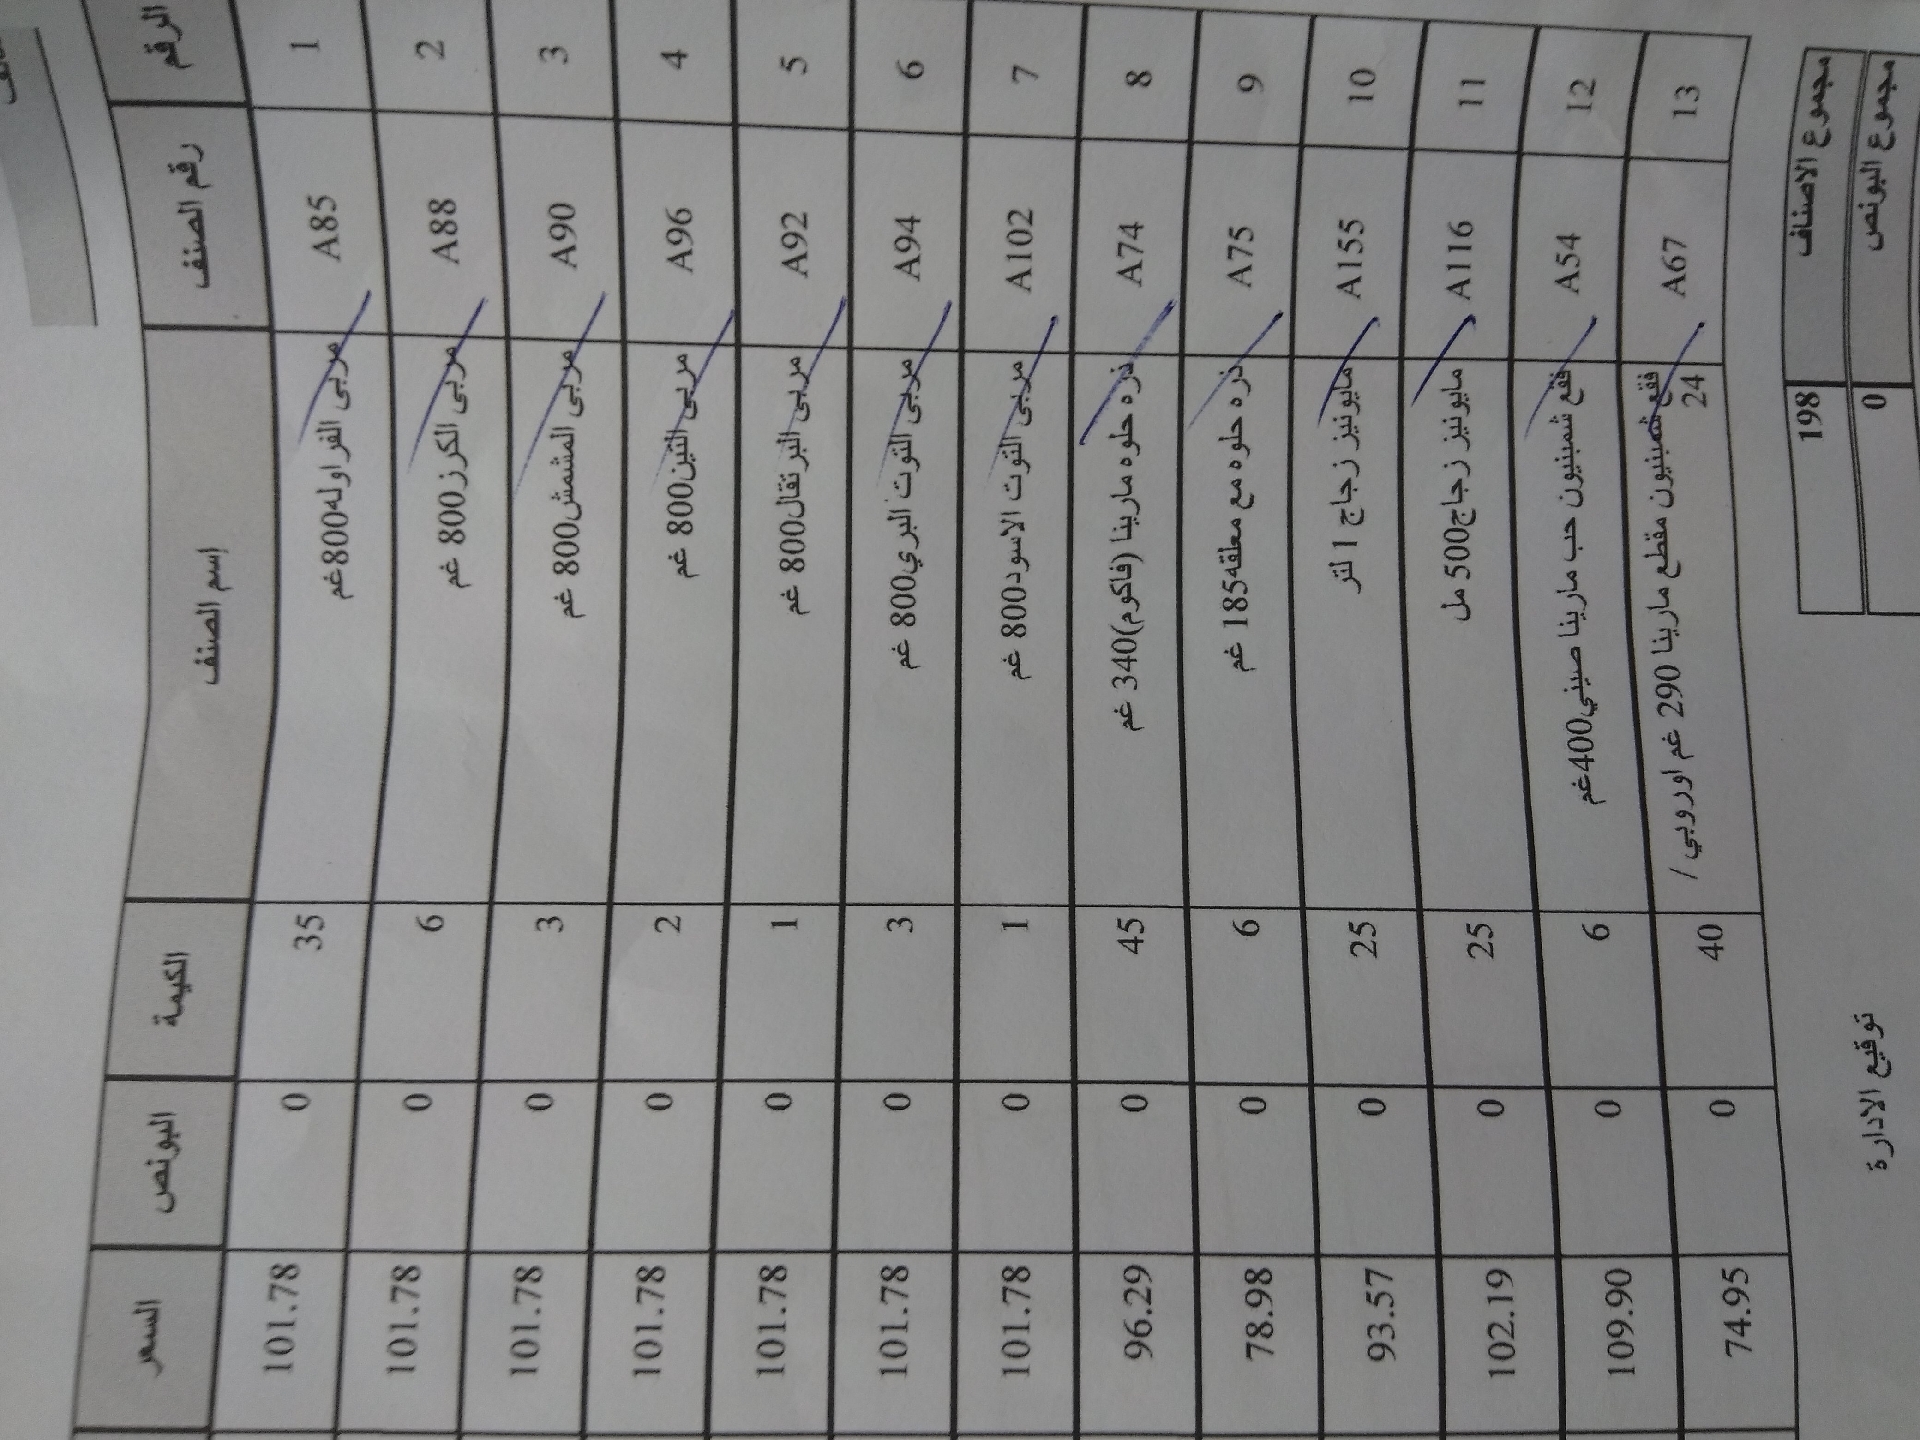 الرقم رقم الصنف إسم الصنف الكيمة البونص السعر
1 A85 مربى الفراوله800غم 35 0 101.78
2 A88 مربى الكرز800 غم 6 0 101.78
3 A90 مربى المشمش800 غم 3 0 101.78
4 A96 مربى التين800 غم 2 0 101.78
5 A92 مربى البرتقال800 غم 1 0 101.78
6 A94 مربى التوت البري800 غم 3 0 101.78
7 A102 مربى التوت الاسود800 غم 1 0 101.78
8 A74 ذره حلوه مارينا (فاكوم)340 غم 45 0 96.29
9 A75 ذره حلوه مع معلقه185 غم 6 0 78.98
10 A155 مايونيز زجاج 1 لتر 25 0 93.57
11 A116 مايونيز زجاج500 مل 25 0 102.19
12 A54 فقع شمبنيون حب مارينا صيني400غم 6 0 109.90
13 A67 فقع شمبنيون مقطع مارينا 290 غم اوروبي / 40 0 74.95
24
مجموع الاصناف 198
مجموع البونص 0
توقيع الادارة